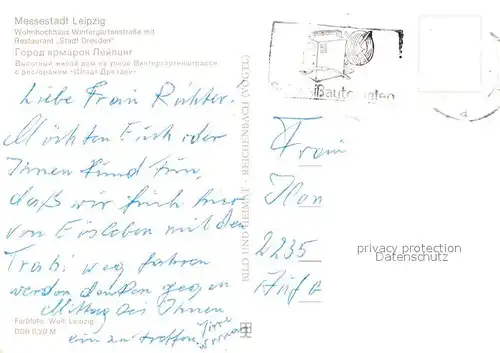 Messestadt Leipzig
Wohnhochhaus Wintergartenstraße mit
Restaurant „Stadt Dresden"
Город ярмарок Лейпциг
Высотный жилой дом на улице Винтергартенштрассе
с рестораном «Штадт Дрезден»
Liebe Frau Richter.
Möchten Euch oder
Ihnen kund tun,
daß wir früh hier
von Eisleben mit dem
Trabi weg fahren
werden denken gegen
Mittag bei Ihnen
ein zu treffen.
Farbfoto: Wolf, Leipzig
DDR 0,20 M
BILD UND HEIMAT · REICHENBACH (VOGTL)
Frau
2235
privacy protection
Datenschutz